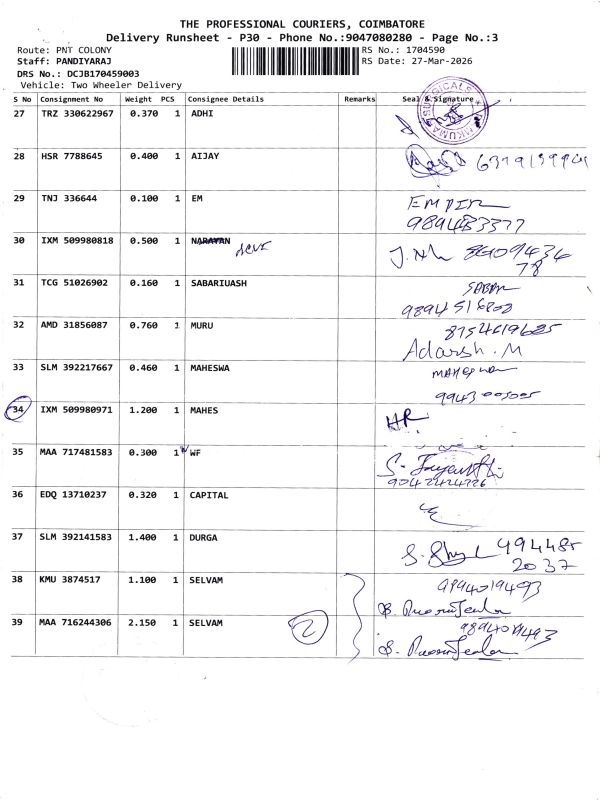 THE PROFESSIONAL COURIERS, COIMBATORE
Delivery Runsheet - P30 - Phone No.:9047080280 - Page No.:3
Route: PNT COLONY RS No.: 1704590
Staff: PANDIYARAJ RS Date: 27-Mar-2026
DRS No.: DCJB170459003
Vehicle: Two Wheeler Delivery
S No Consignment No Weight PCS Consignee Details Remarks Seal & Signature
27 TRZ 330622967 0.370 1 ADHI
28 HSR 7788645 0.400 1 AIJAY
29 TNJ 336644 0.100 1 EM
9894833777
30 IXM 509980818 0.500 1 NARAYAN
78
31 TCG 51026902 0.160 1 SABARIUASH
32 AMD 31856087 0.760 1 MURU
Adarsh. M
33 SLM 392217667 0.460 1 MAHESWA
34 IXM 509980971 1.200 1 MAHES
HR
35 MAA 717481583 0.300 1 WF
9042424226
36 EDQ 13710237 0.320 1 CAPITAL
37 SLM 392141583 1.400 1 DURGA
494485
2037
38 KMU 3874517 1.100 1 SELVAM
9894019493
39 MAA 716244306 2.150 1 SELVAM 2
9894019493